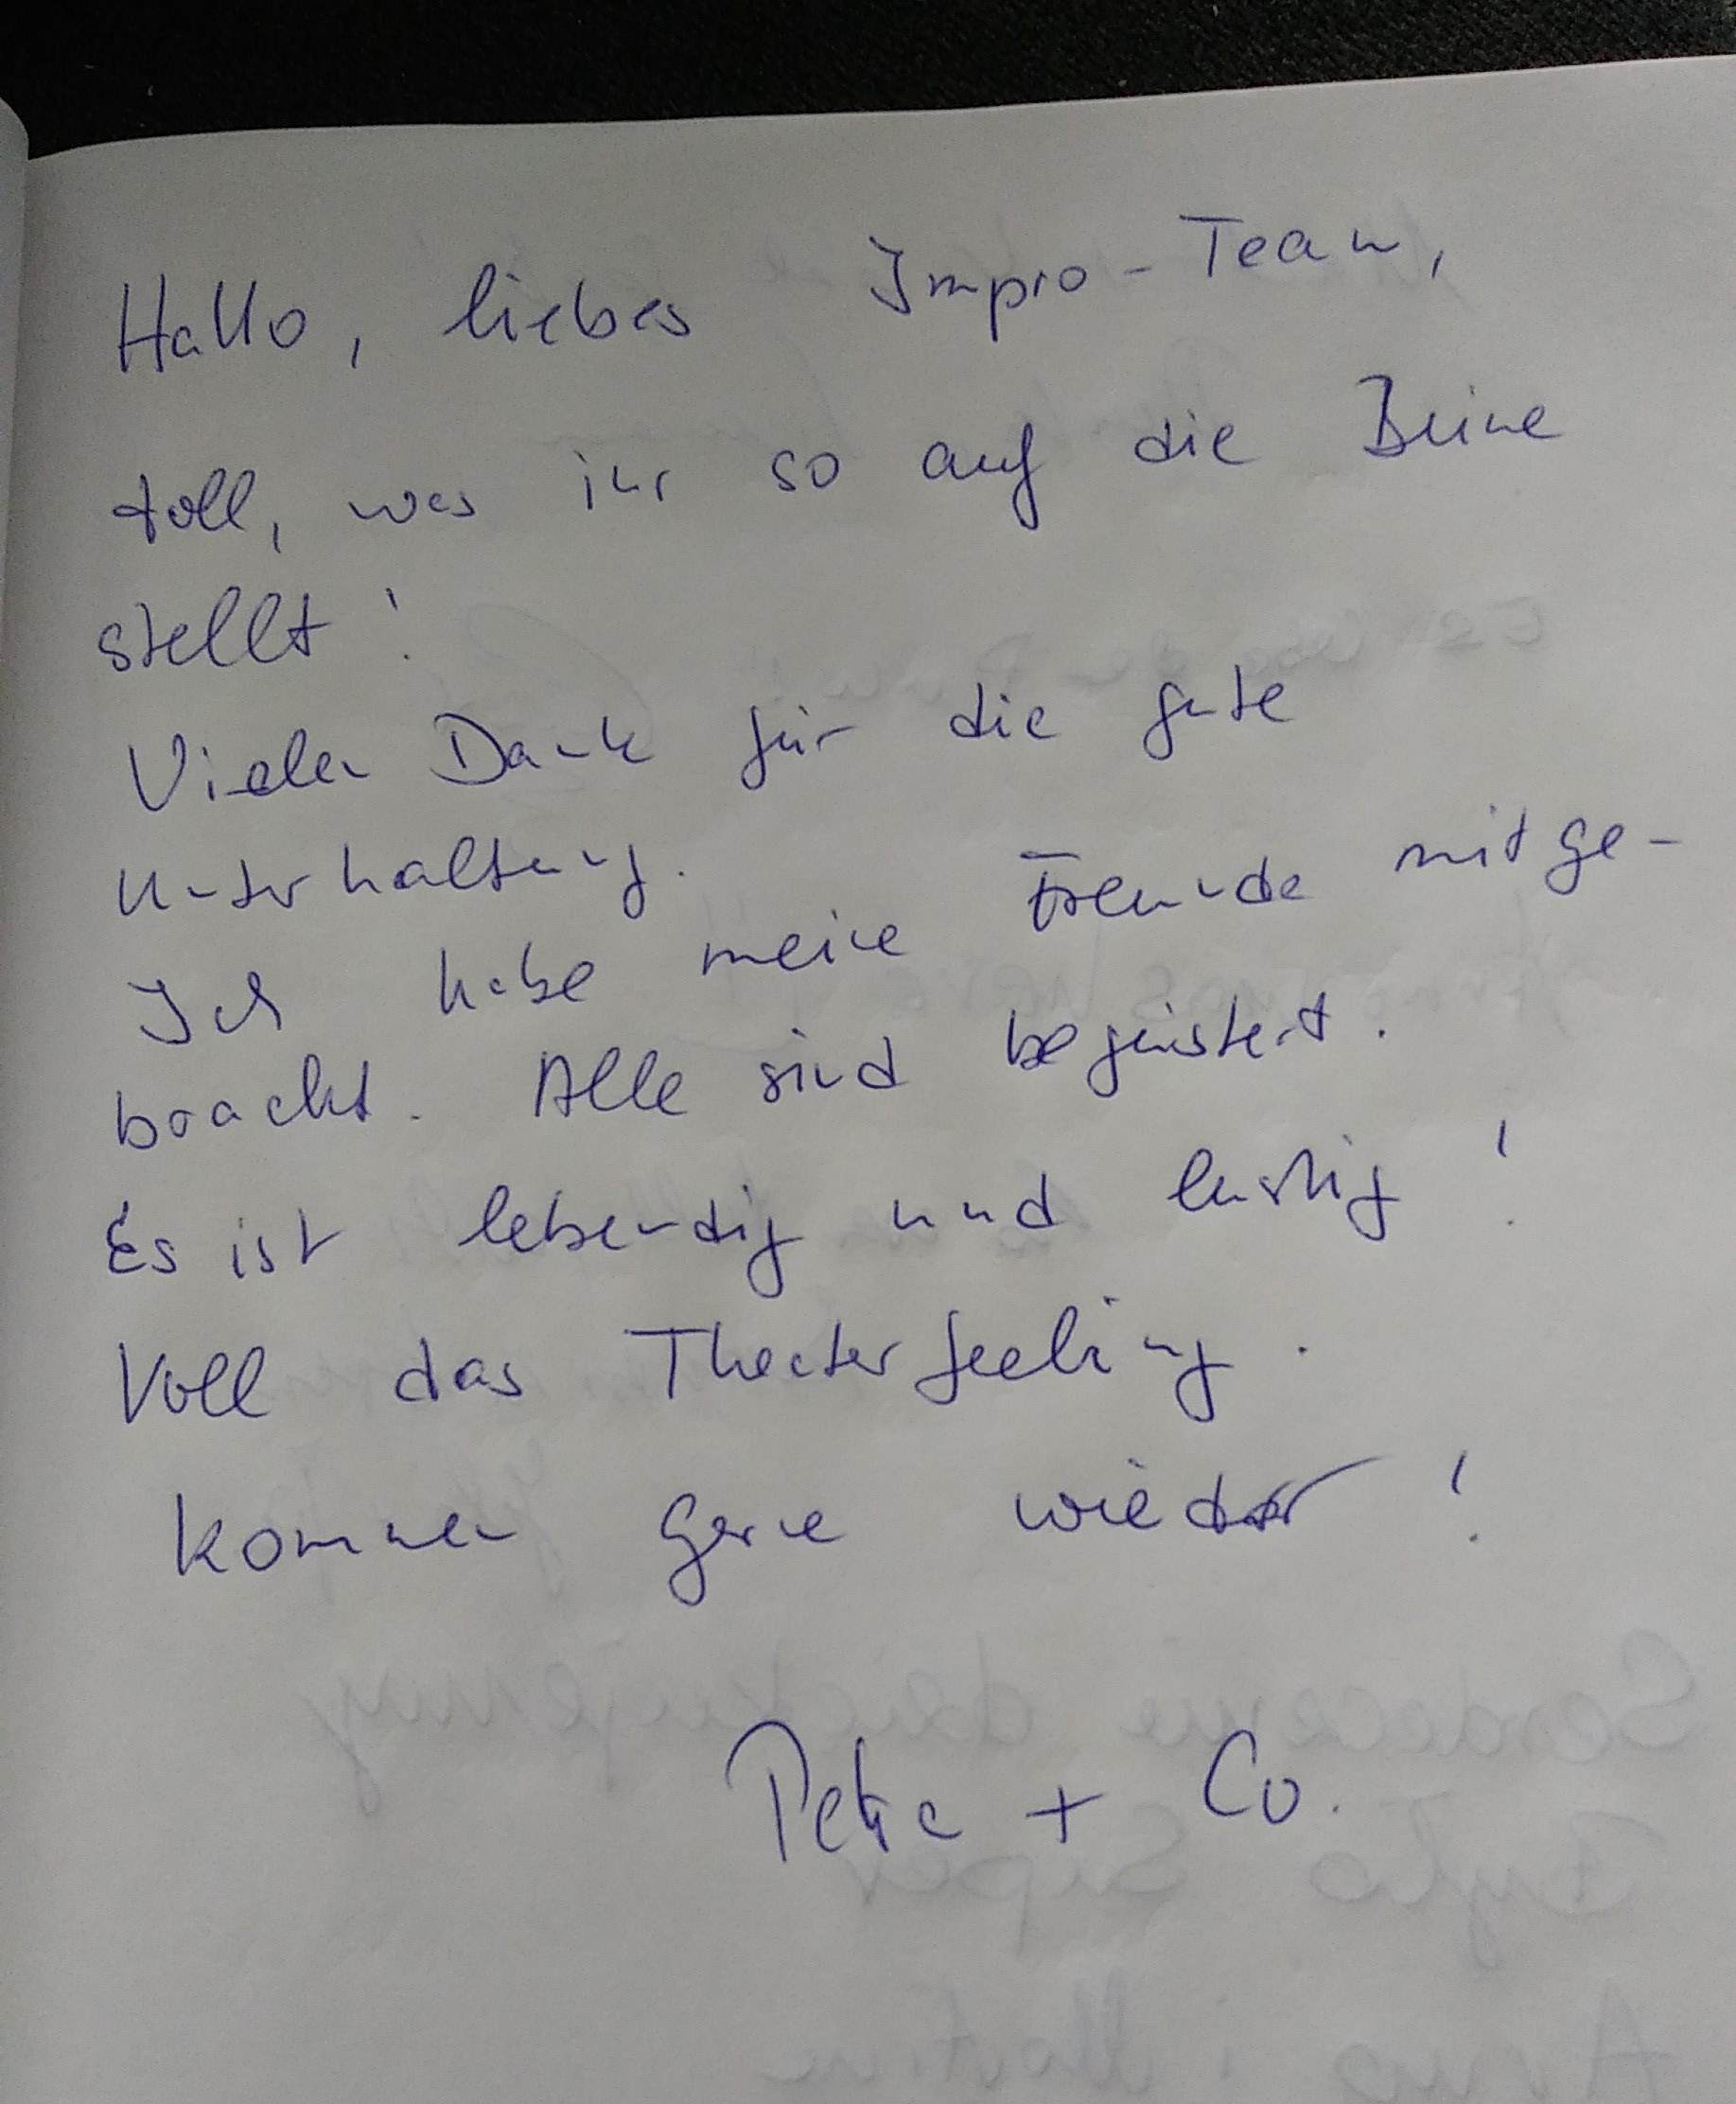 Hallo, liebes Impro-Team,
toll, was ihr so auf die Beine
stellt!
Vielen Dank für die gute
Unterhaltung.
Ich habe meine Freunde mitge-
bracht. Alle sind begeistert.
Es ist lebendig und lustig!
Voll das Theaterfeeling.
Kommen gerne wieder!
Petra + Co.